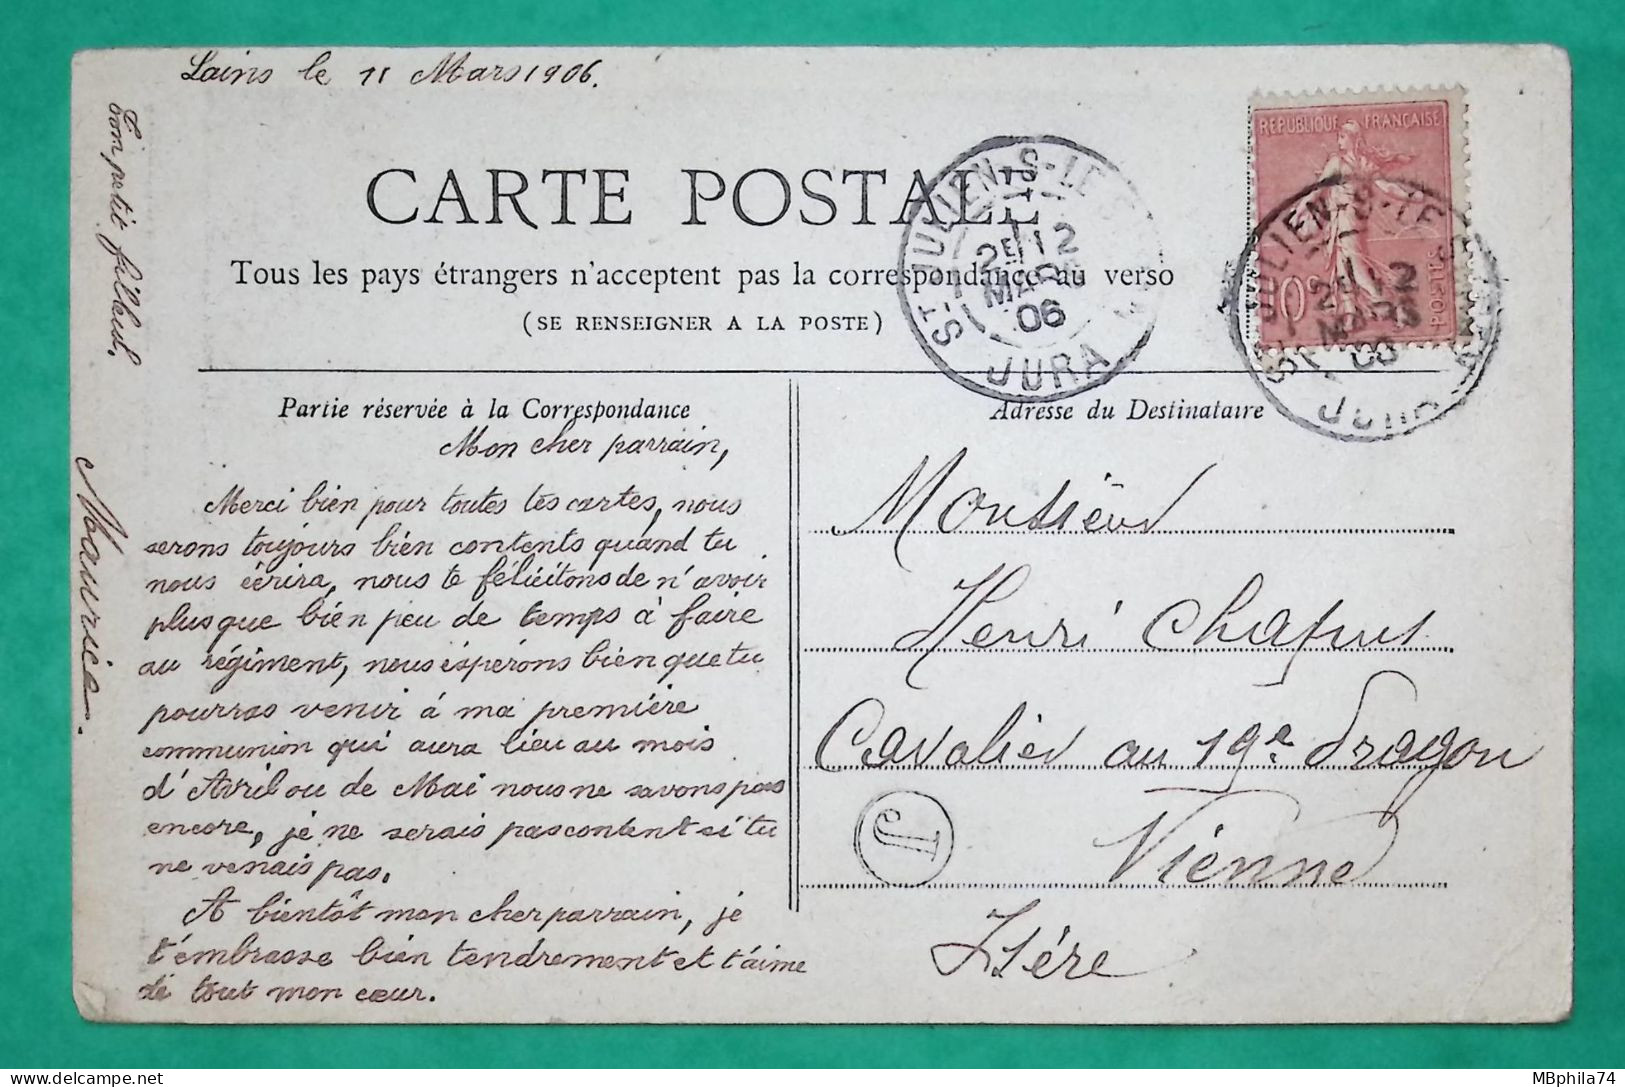 Lains le 11 Mars 1906.
CARTE POSTALE
Tous les pays étrangers n'acceptent pas la correspondance au verso
(SE RENSEIGNER A LA POSTE)
RÉPUBLIQUE FRANÇAISE
10c POSTES
ST-JULIEN-S-LE-S
2E 12
MARS
06
JURA
ST-JULIEN-S-LE-S
2E 12
MARS
06
JURA
Partie réservée à la Correspondance
Mon cher parrain,
Merci bien pour toutes tes cartes, nous
serons toujours bien contents quand tu
nous écrira, nous te félicitons de n'avoir
plus que bien peu de temps à faire
au régiment, nous espérons bien que tu
pourras venir à ma première
communion qui aura lieu au mois
d'Avril ou de Mai nous ne savons pas
encore, je ne serais pas content si tu
ne venais pas.
A bientôt mon cher parrain, je
t'embrasse bien tendrement et t'aime
de tout mon cœur.
Ton petit filleul.
Maurice.
Adresse du Destinataire
Monsieur
Henri Chapuis
Cavalier au 19e dragon
Vienne
Isère
J
MBphila74